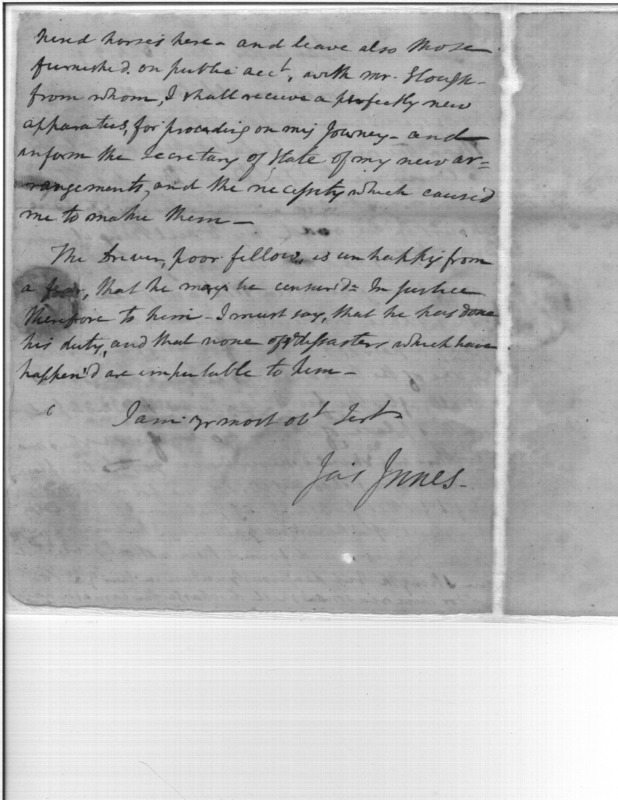 hired horses here – and leave also those
furnished on public acct, with Mr. Slough –
from whom, I shall receive a perfectly new
apparatus, for proceeding on my Journey – and
inform the Secretary of State of my new ar=
rangements, and the necessity which caused
me to make them –
The Driver, poor fellow, is unhappy from
a fear, that he may be censur'd – In justice
therefore to him – I must say, that he has done
his duty, and that none of ye disasters which have
happen'd are imputable to him –
I am yr most obt Servt
Jas Innes –